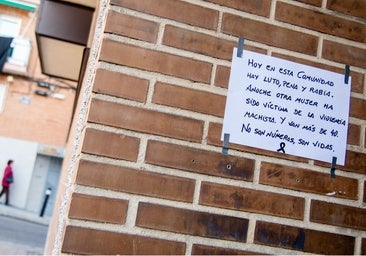 HOY EN ESTA COMUNIDAD
HAY LUTO, PENA Y RABIA.
ANOCHE OTRA MUJER HA
SIDO VÍCTIMA DE LA VIOLENCIA
MACHISTA. Y VAN MÁS DE 40.
NO SON NÚMEROS, SON VIDAS.